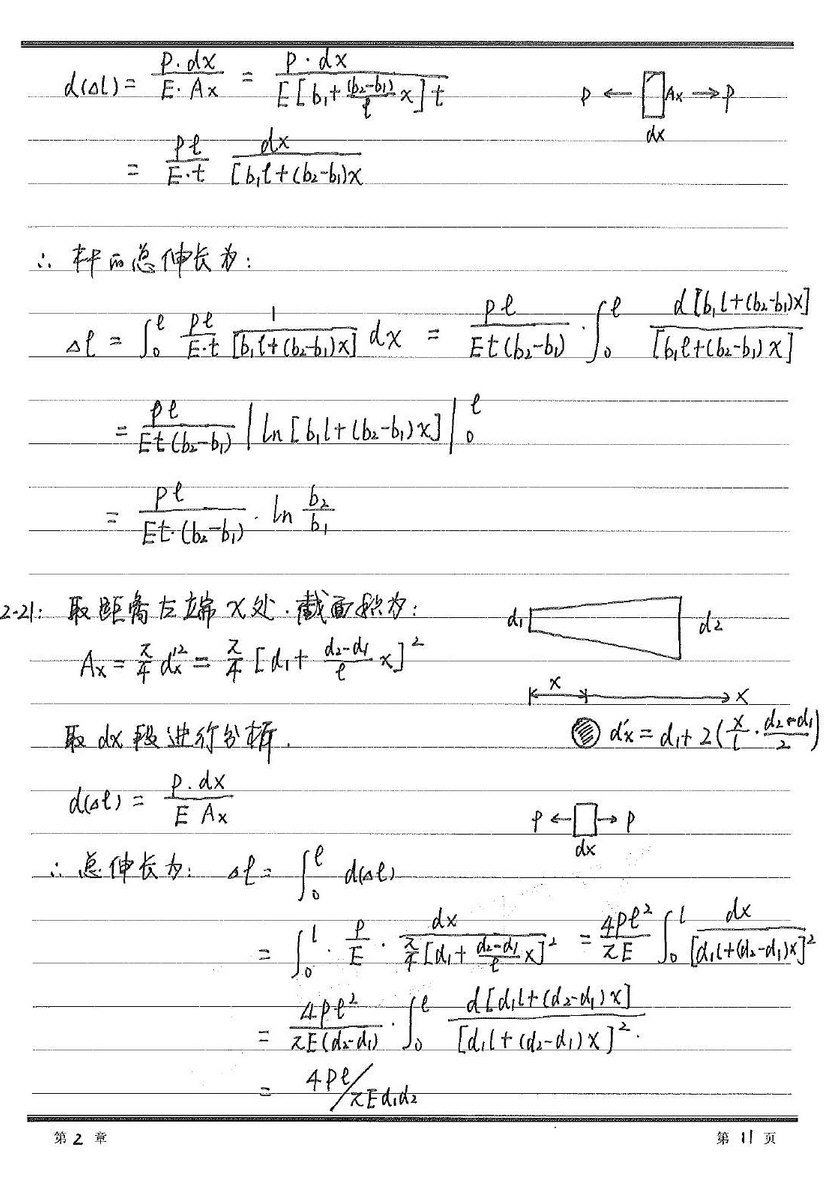 d(Δl) = P·dx / E·Ax = P·dx / E[b₁+(b₂-b₁)/l x]t
P ← Ax → P
dx
= Pl/E·t dx/[b₁l+(b₂-b₁)x
∴ 杆的总伸长为:
Δl = ∫₀ˡ Pl/E·t 1/[b₁l+(b₂-b₁)x] dx = Pl/Et(b₂-b₁) · ∫₀ˡ d[b₁l+(b₂-b₁)x]/[b₁l+(b₂-b₁)x]
= Pl/Et(b₂-b₁) |ln[b₁l+(b₂-b₁)x]|₀ˡ
= Pl/Et·(b₂-b₁) · ln b₂/b₁
2-21: 取距离左端x处.截面积为:
d₁ d₂
Ax = π/4 dx'² = π/4 [d₁+ (d₂-d₁)/l x]²
x x
取dx段进行分析.
dx' = d₁+2(x/l · (d₂-d₁)/2)
d(Δl) = P·dx / E Ax
P ← → P
dx
∴ 总伸长为: Δl = ∫₀ˡ d(Δl)
= ∫₀ˡ · P/E · dx / π/4[d₁+ (d₂-d₁)/l x]² = 4Pl²/πE ∫₀ˡ dx/[d₁l+(d₂-d₁)x]²
= 4Pl²/πE(d₂-d₁) · ∫₀ˡ d[d₁l+(d₂-d₁)x]/[d₁l+(d₂-d₁)x]².
= 4Pl/πEd₁d₂
第 2 章
第 11 页